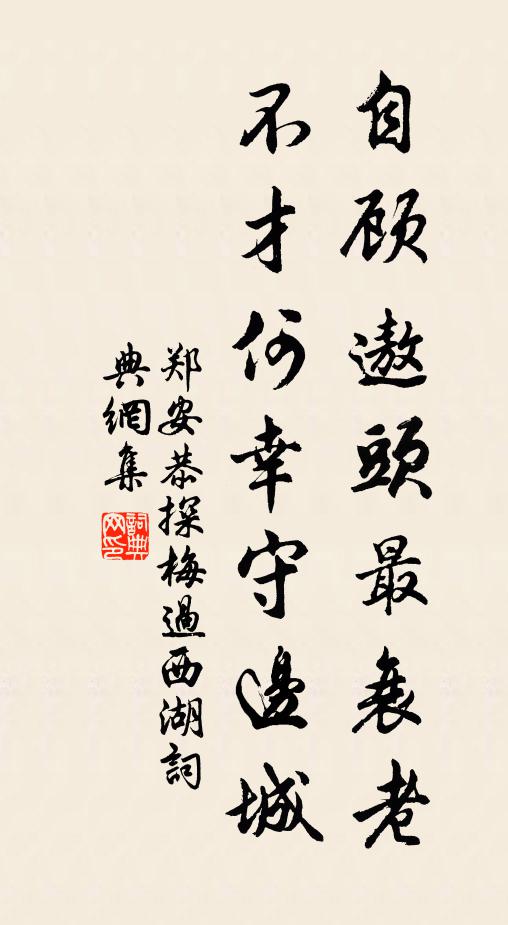 自顾遨頭最衰老
不才何幸守邊城
郑安恭探梅過西湖詞
典網集
詞典
网印